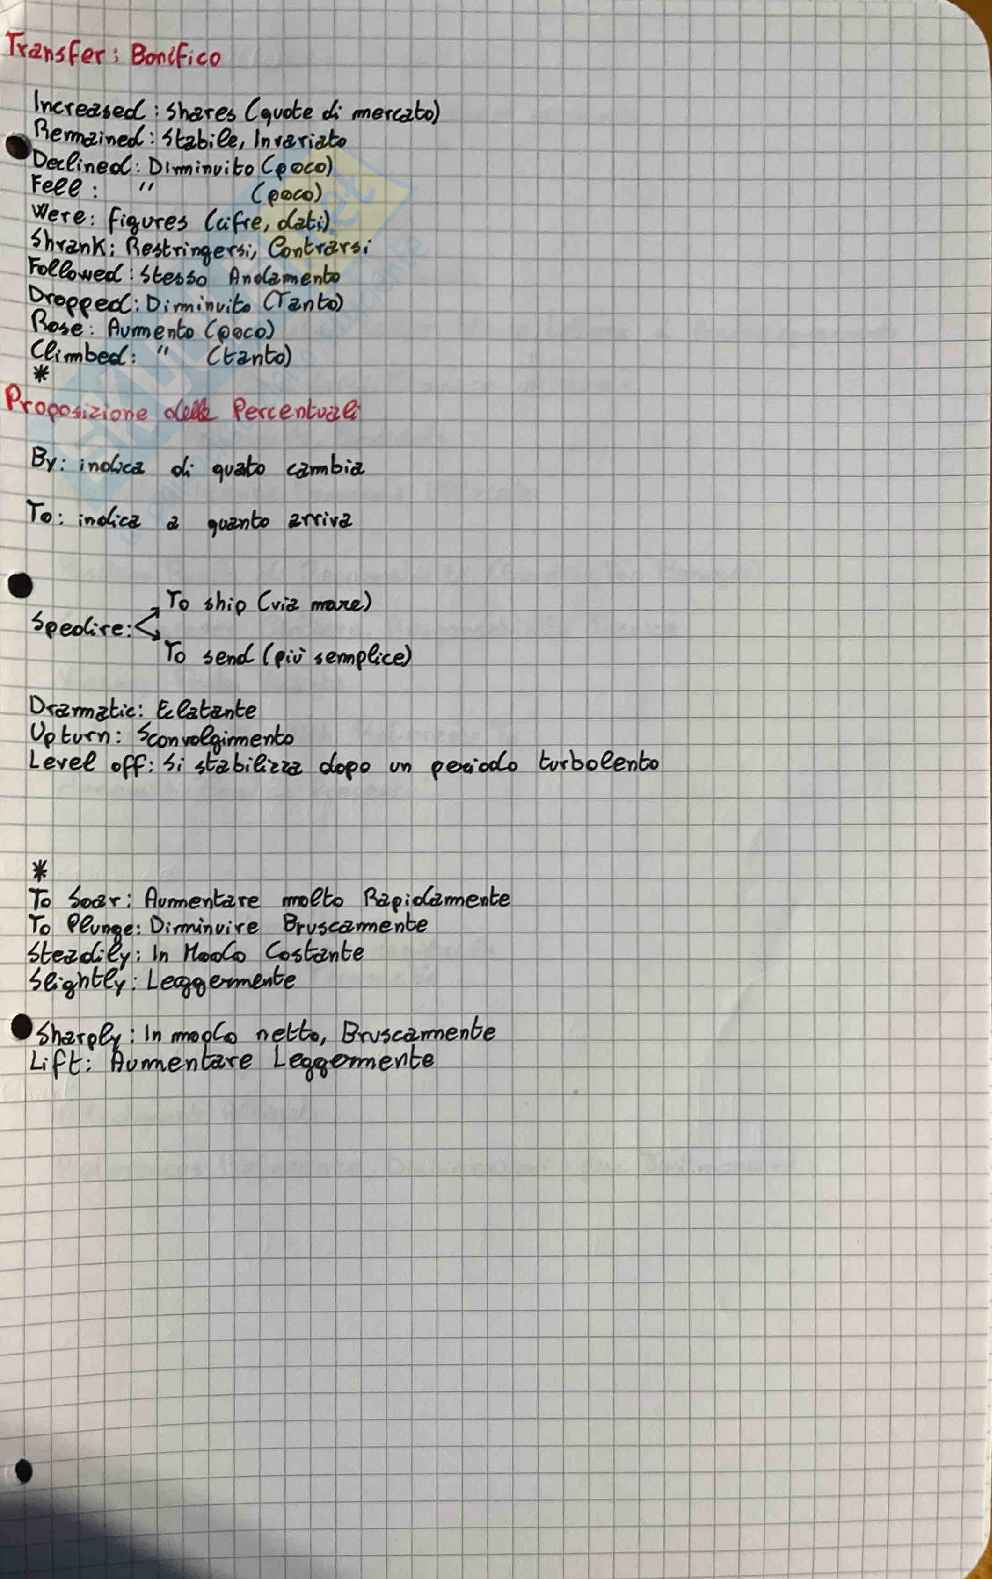 Transfer: Bonifico
Increased: shares (quote di mercato)
Remained: Stabile, Invariato
Declined: Diminuito (poco)
Fell: " (poco)
Were: figures (cifre, dati)
Shrank: Restringersi, Contrarsi
Followed: Stesso Andamento
Dropped: Diminuito (Tanto)
Rose: Aumento (poco)
Climbed: " (tanto)
*
Proposizione delle Percentuali
By: indica di quato cambia
To: indica a quanto arriva
To ship (via mare)
Spedire:
To send (più semplice)
Dramatic: Eclatante
Upturn: Sconvolgimento
Level off: Si stabilizza dopo un periodo turbolento
*
To Soar: Aumentare molto Rapidamente
To Plunge: Diminuire Bruscamente
Steadily: In Modo Costante
Slightly: Leggermente
Sharply: In modo netto, Bruscamente
Lift: Aumentare Leggermente